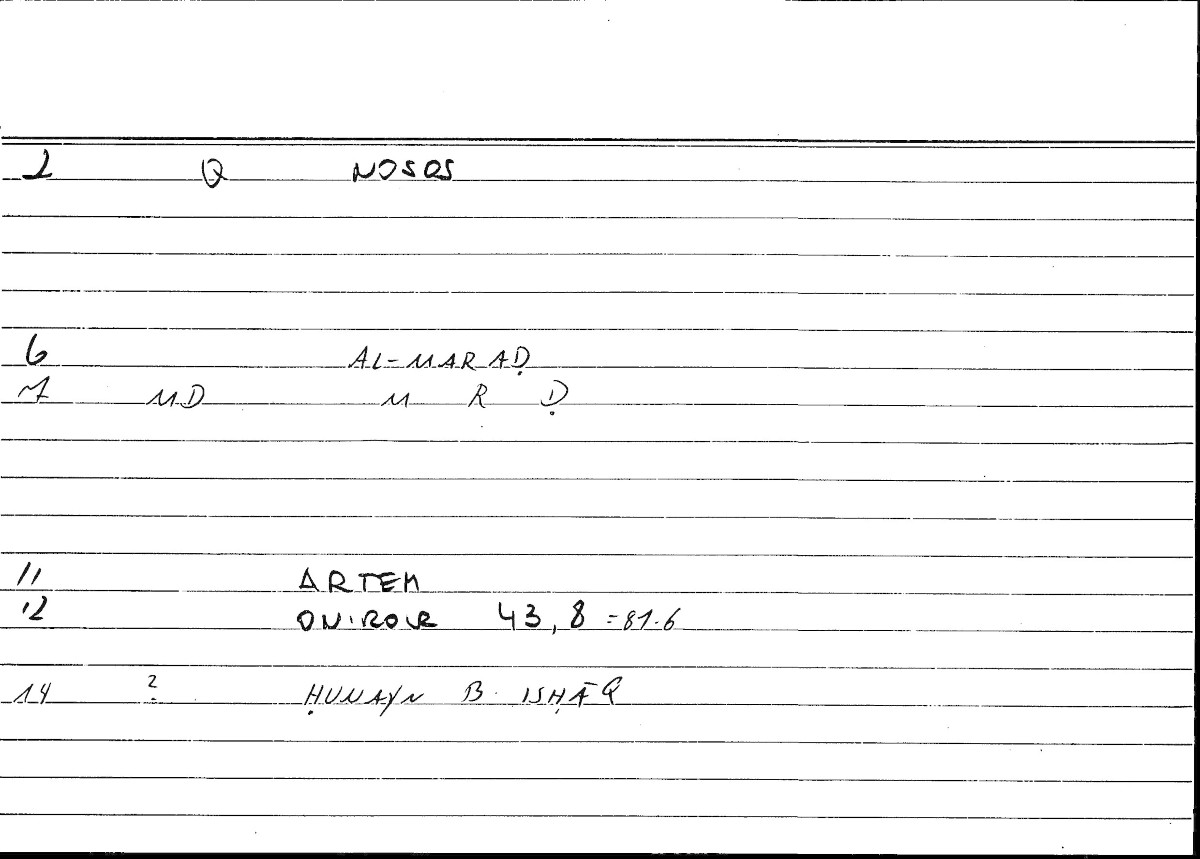 2 Q NOSOS
6 AL-MARAḌ
7 MD M R Ḍ
11 ARTEM
12 ONIROCR 43,8 =81.6
14 2 ḤUNAYN B. ISḤĀQ